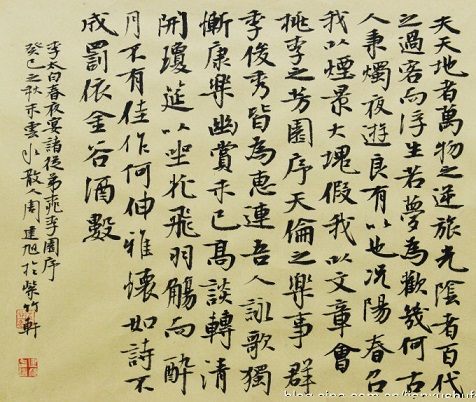 夫天地者萬物之逆旅光陰者百代
之過客而浮生若夢為歡幾何古
人秉燭夜遊良有以也況陽春召
我以煙景大塊假我以文章會
桃李之芳園序天倫之樂事群
季俊秀皆為惠連吾人詠歌獨
慚康樂幽賞未已高談轉清
開瓊筵以坐花飛羽觴而醉
月不有佳作何伸雅懷如詩不
成罰依金谷酒數
李太白春夜宴諸從弟桃李園序
癸巳之秋末雲水散人周建旭於紫竹軒